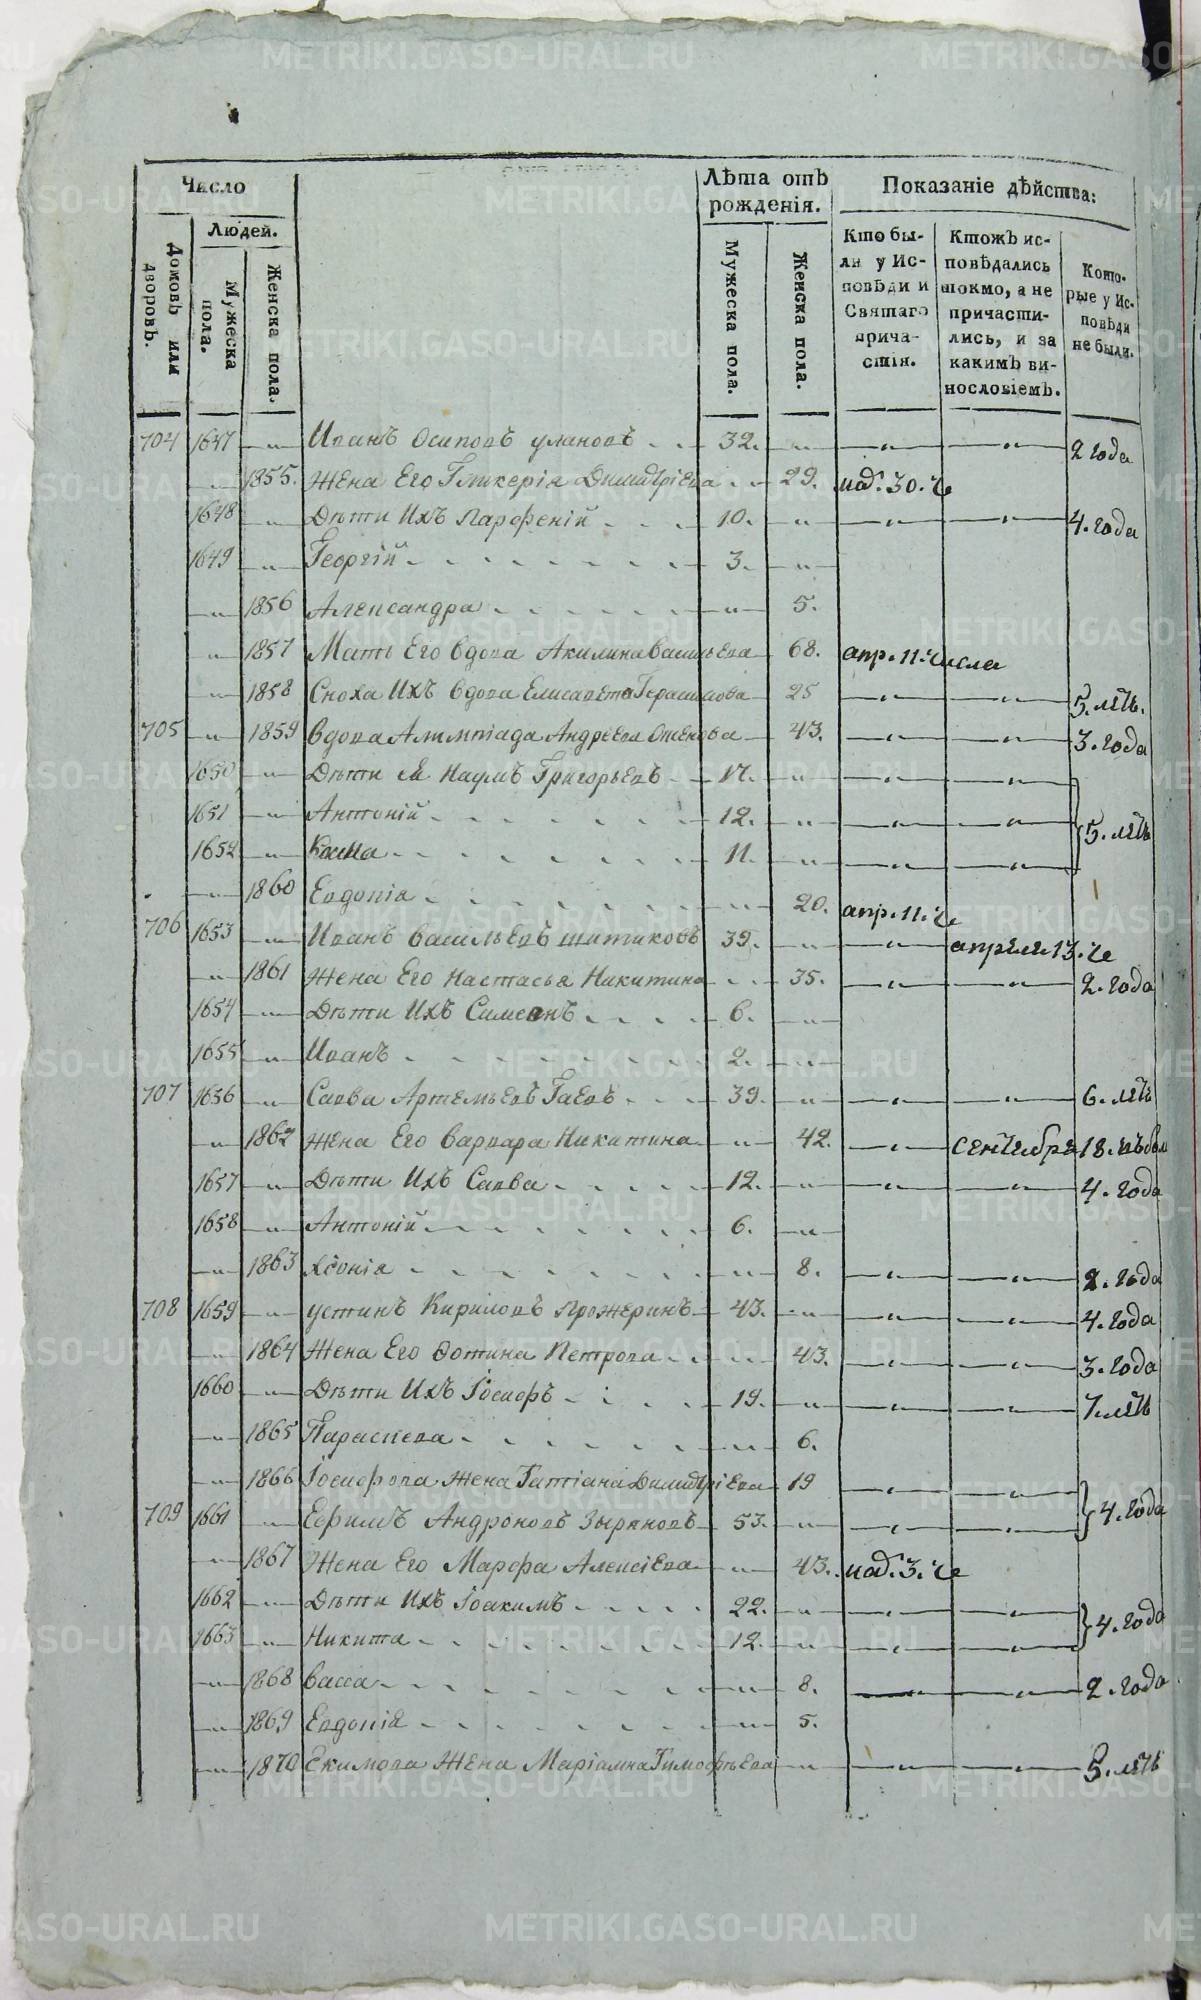 Число
Лѣта отъ рожденія.
Показаніе дѣйства:
Домовъ или дворовъ.
Людей.
Мужеска пола.
Женска пола.
Мужеска пола.
Женска пола.
Кто бы-
ли у Ис-
повѣди и
Святаго
прича-
стія.
Ктожъ ис-
повѣдались
токмо, а не
причасти-
лись, и за
какимъ ви-
нословіемъ.
Кото-
рые у Ис-
повѣди
не были.
704 1647 —„— Иванъ Осиповъ улановъ - - 32. —„— —„— —„— 2 года
—„— 1855. Жена Его Гликерія Димитріева - - 29. мая. 30. че
1648 —„— Дѣти Ихъ Парфеній - - - 10. —„— —„— —„— 4. года
1649 —„— Георгій - - - 3. —„—
—„— 1856 Александра - - - —„— 5.
—„— 1857 Мать Его вдова Акилина васильева — 68. апр. 11. числа
—„— 1858 Сноха Ихъ вдова Елисавета Герасимова — 25 —„— —„— 5. лѣтъ.
705 —„— 1859 вдова Алимпіада Андреева — 43. —„— —„— 3. года
1650 —„— Дѣти Наумъ Григорьевъ — 17. —„— —„— —„—
1651 —„— Антоній - - - 12. —„— —„— —„— 5. лѣтъ
1652 —„— - - - 11. —„— —„— —„—
—„— 1860 Евдокія - - - —„— 20. апр. 11. че
706 1653 —„— Иванъ васильевъ шитиковъ 39. —„— —„— апреля 13. че
—„— 1861 Жена Его Настасья Никитина - - 35. —„— —„— 2. года
1654 —„— Дѣти Ихъ Симеонъ - - - 6. —„—
1655 —„— Иванъ - - - 2. —„—
707 1656 —„— Савва Артемьевъ Гаевъ - - - 39. —„— —„— —„— 6. лѣтъ
—„— 1862 Жена Его варвара Никитина —„— 42. —„— сентебря 18.
1657 —„— Дѣти Ихъ Савва - - - 12. —„— —„— —„— 4. года
1658 —„— Антоній - - - 6. —„—
—„— 1863 - - - —„— 8. —„— —„— 2. года
708 1659 —„— устинъ Кириловъ Прожеринъ — 43. —„— —„— —„— 4. года
—„— 1864 Жена Его Фотина Петрова - - - 43. —„— —„— 3. года
1660 —„— Дѣти Ихъ Іосифъ - - - 19. —„— —„— —„— 7. лѣтъ
—„— 1865 Параскева - - - —„— 6.
—„— 1866 Іосифова жена Татіана Димитріева 19 —„— —„— 4. года
709 1661 —„— Ефимъ Андроновъ Зыряновъ — 53. —„— —„— —„—
—„— 1867 Жена Его Марфа Алексіева —„— 43. мая. 3. че
1662 —„— Дѣти Ихъ Іоакимъ - - - 22. —„— —„— —„— 4. года
1663 —„— Никита - - - 12. —„— —„— —„—
—„— 1868 васса - - - —„— 8. —„— —„— 2. года
—„— 1869 Евдокія - - - —„— 5.
—„— 1870 Екимова Жена Маріамна Тимофѣева —„— —„— —„— 5. лѣтъ
METRIKI.GASO-URAL.RU